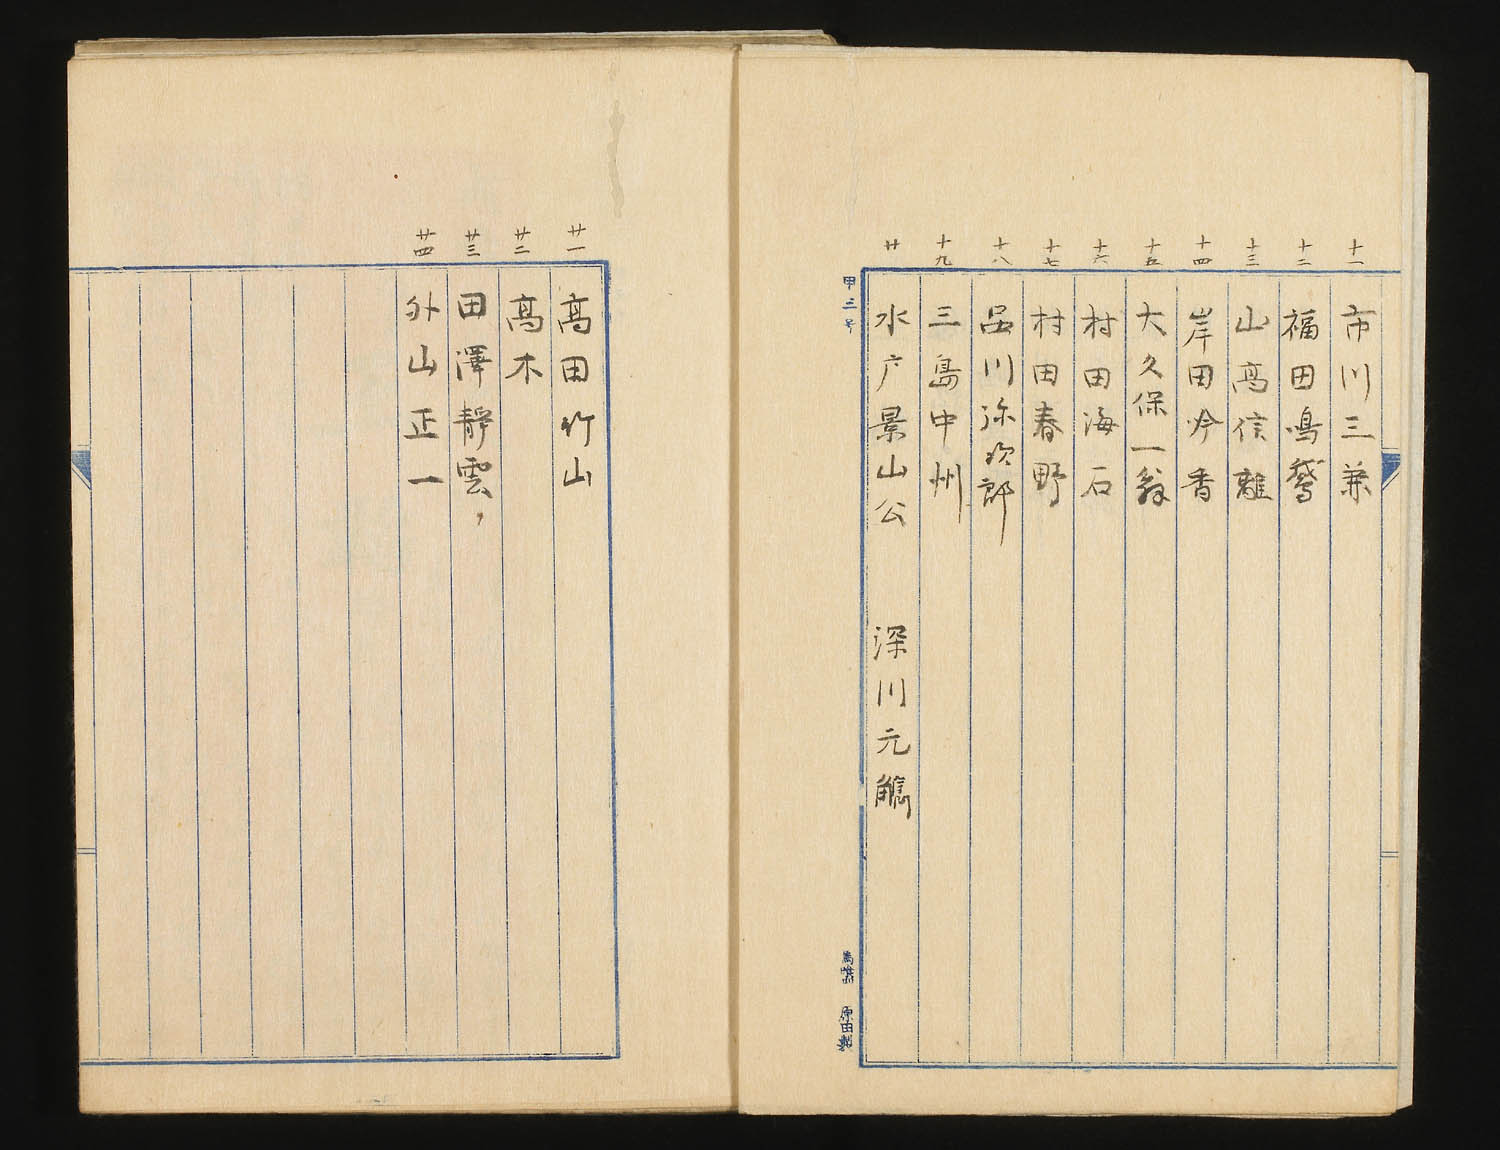 十一 市川三兼
十二 福田鳴鵞
十三 山高信離
十四 岸田吟香
十五 大久保一翁
十六 村田海石
十七 村田春野
十八 品川弥次郎
十九 三島中州
廿 水戸景山公 深川元儁
甲三号
原田製
廿一 高田竹山
廿二 高木
廿三 田澤靜雲
廿四 外山正一